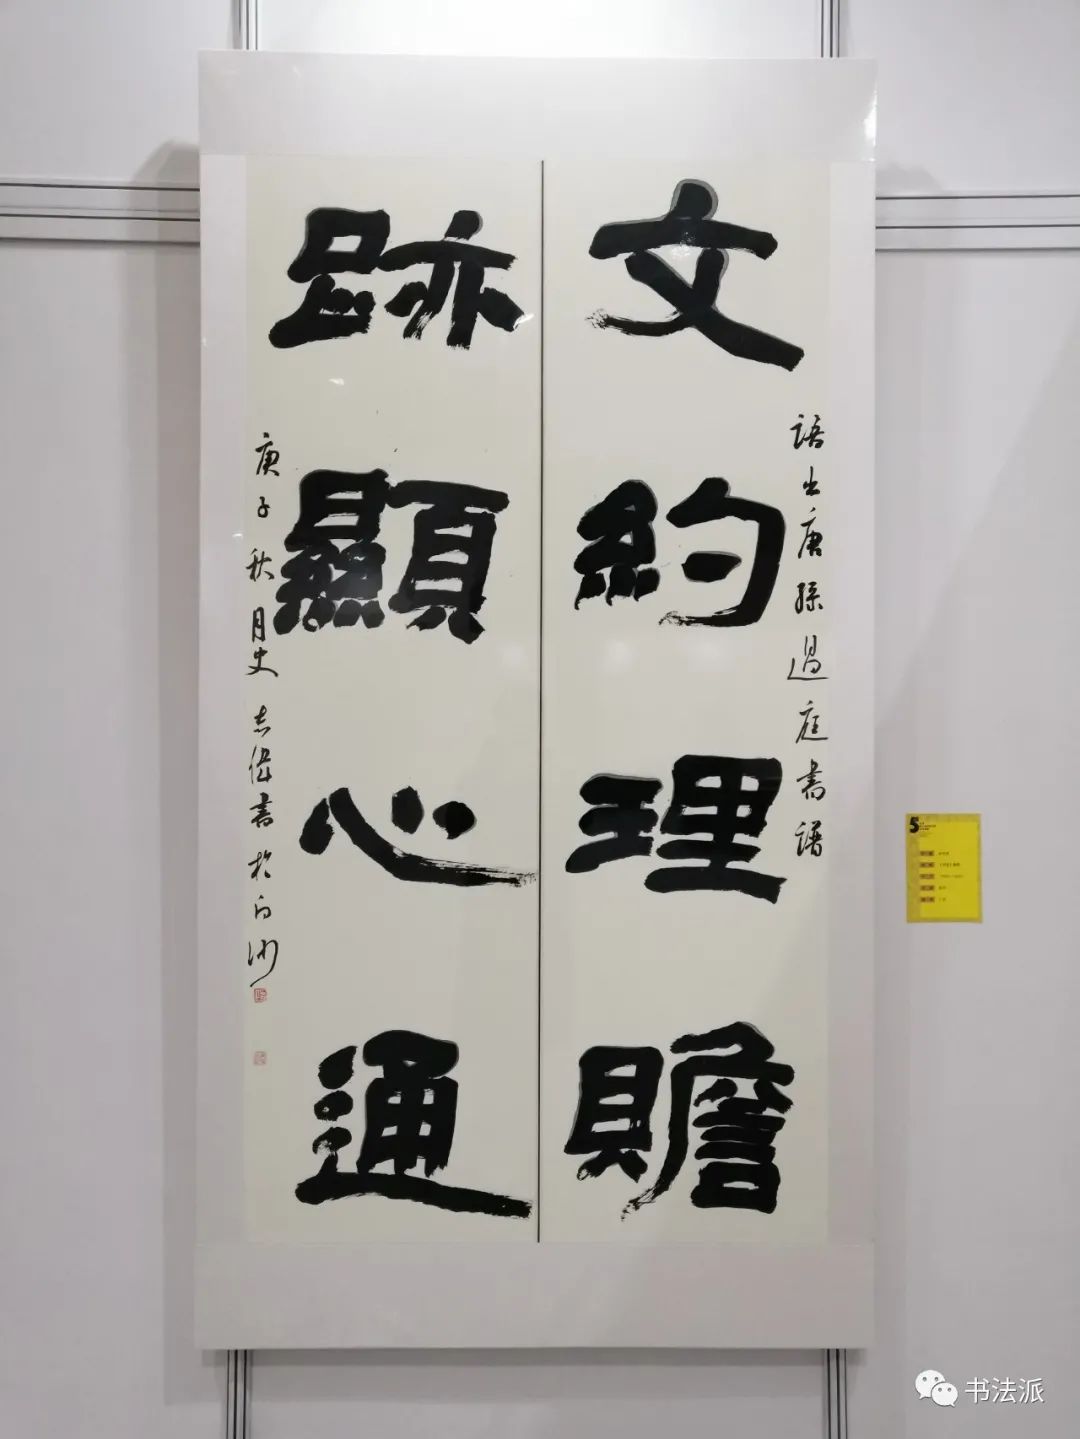 文約理贍
語出唐孫過庭書譜
跡顯心通
庚子秋月史志偉書於白沙
5
书法派